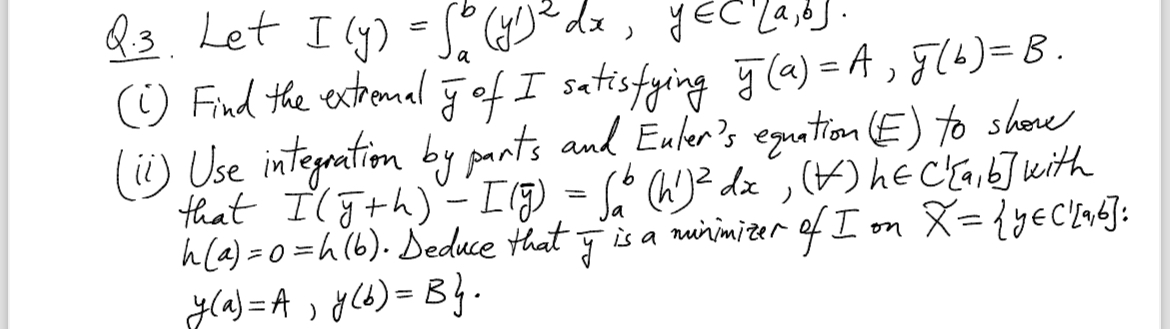 Q.3. Let I(y) = ∫ₐᵇ (y')² dx, y ∈ C'[a,b].
(i) Find the extremal ȳ of I satisfying ȳ(a) = A, ȳ(b) = B.
(ii) Use integration by parts and Euler's equation (E) to show
that I(ȳ+h) - I(ȳ) = ∫ₐᵇ (h')² dx, (∀) h ∈ C'[a,b] with
h(a) = 0 = h(b). Deduce that ȳ is a minimizer of I on X̃ = {y ∈ C'[a,b]:
y(a) = A, y(b) = B}.